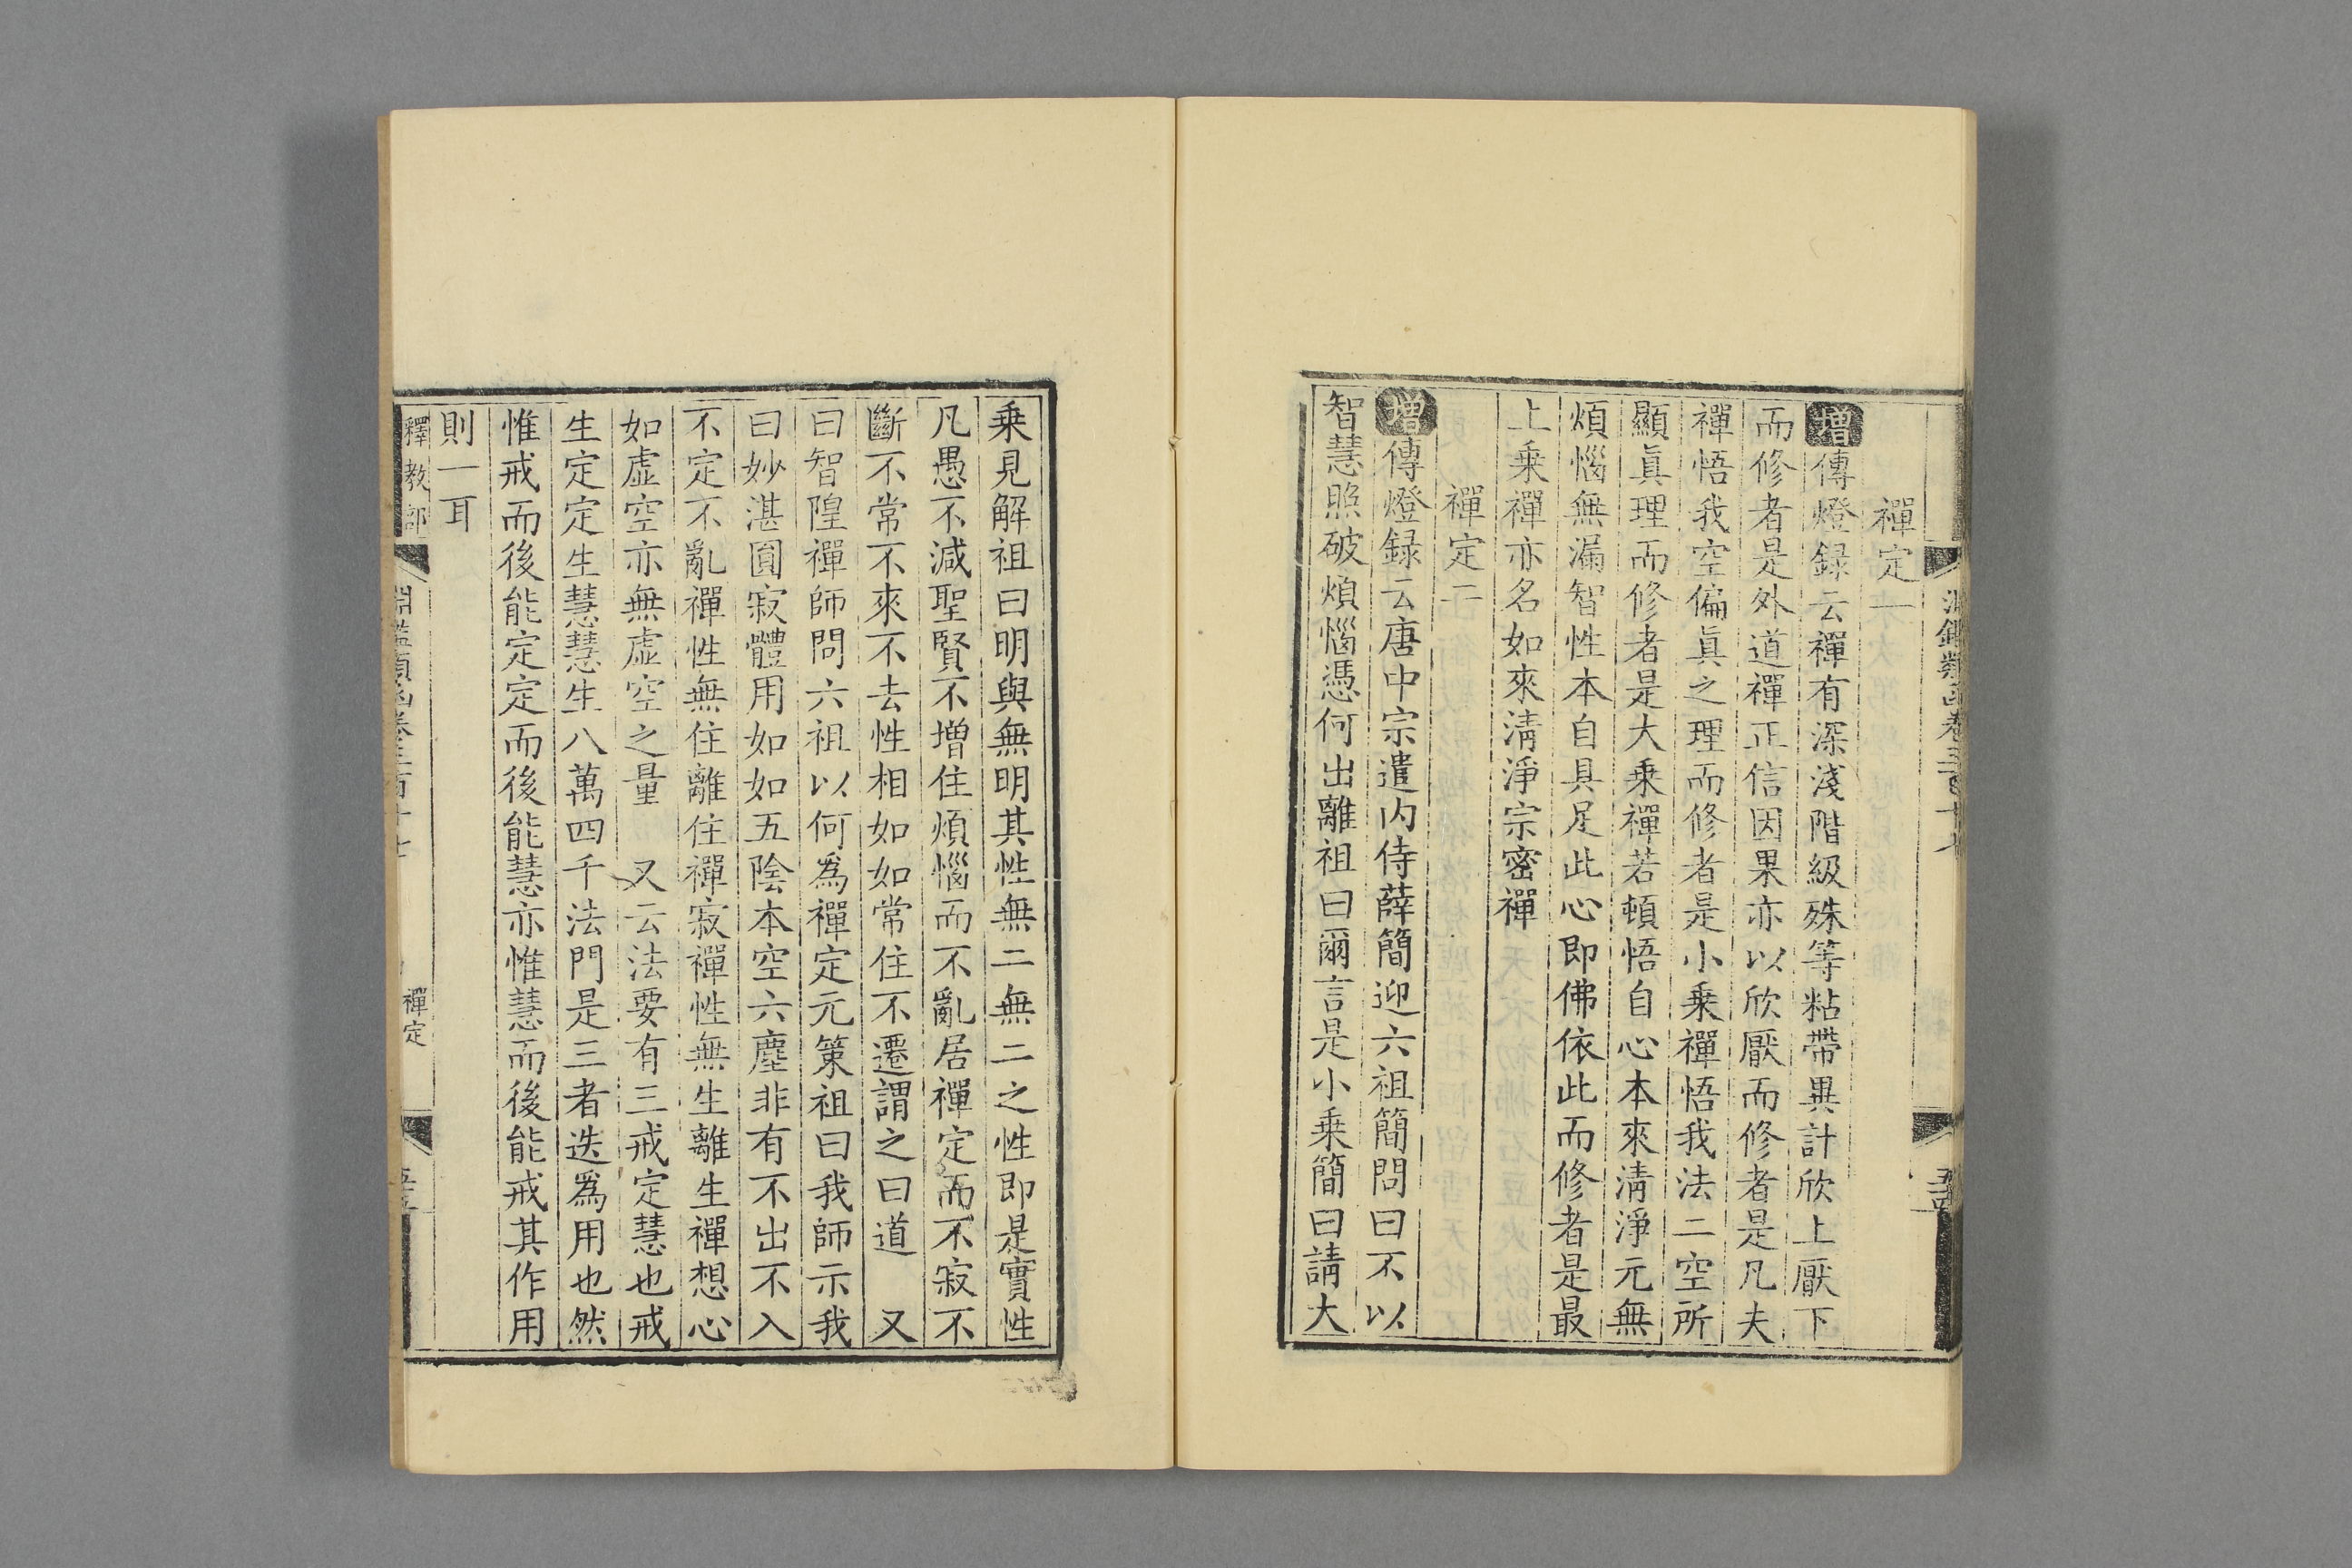 禪定一
增傳燈録云禪有深淺階級殊等粘帶異計欣上厭下
而修者是外道禪正信因果亦以欣厭而修者是凡夫
禪悟我空偏眞之理而修者是小乘禪悟我法二空所
顯眞理而修者是大乘禪若頓悟自心本來淸淨元無
煩惱無漏智性本自具足此心即佛依此而修者是最
上乘禪亦名如來淸淨宗密禪
禪定二
增傳燈録云唐中宗遣内侍薛簡迎六祖簡問曰不以
智慧照破煩惱憑何出離祖曰爾言是小乘簡曰請大
乘見解祖曰明與無明其性無二無二之性即是實性
凡愚不減聖賢不增住煩惱而不亂居禪定而不寂不
斷不常不來不去性相如如常住不遷謂之曰道　又
曰智隍禪師問六祖以何爲禪定元策祖曰我師示我
曰妙湛圓寂體用如如五陰本空六塵非有不出不入
不定不亂禪性無住離住禪寂禪性無生離生禪想心
如虛空亦無虛空之量　又云法要有三戒定慧也戒
生定定生慧慧生八萬四千法門是三者迭爲用也然
惟戒而後能定定而後能慧亦惟慧而後能戒其作用
則一耳
釋教部
禪定